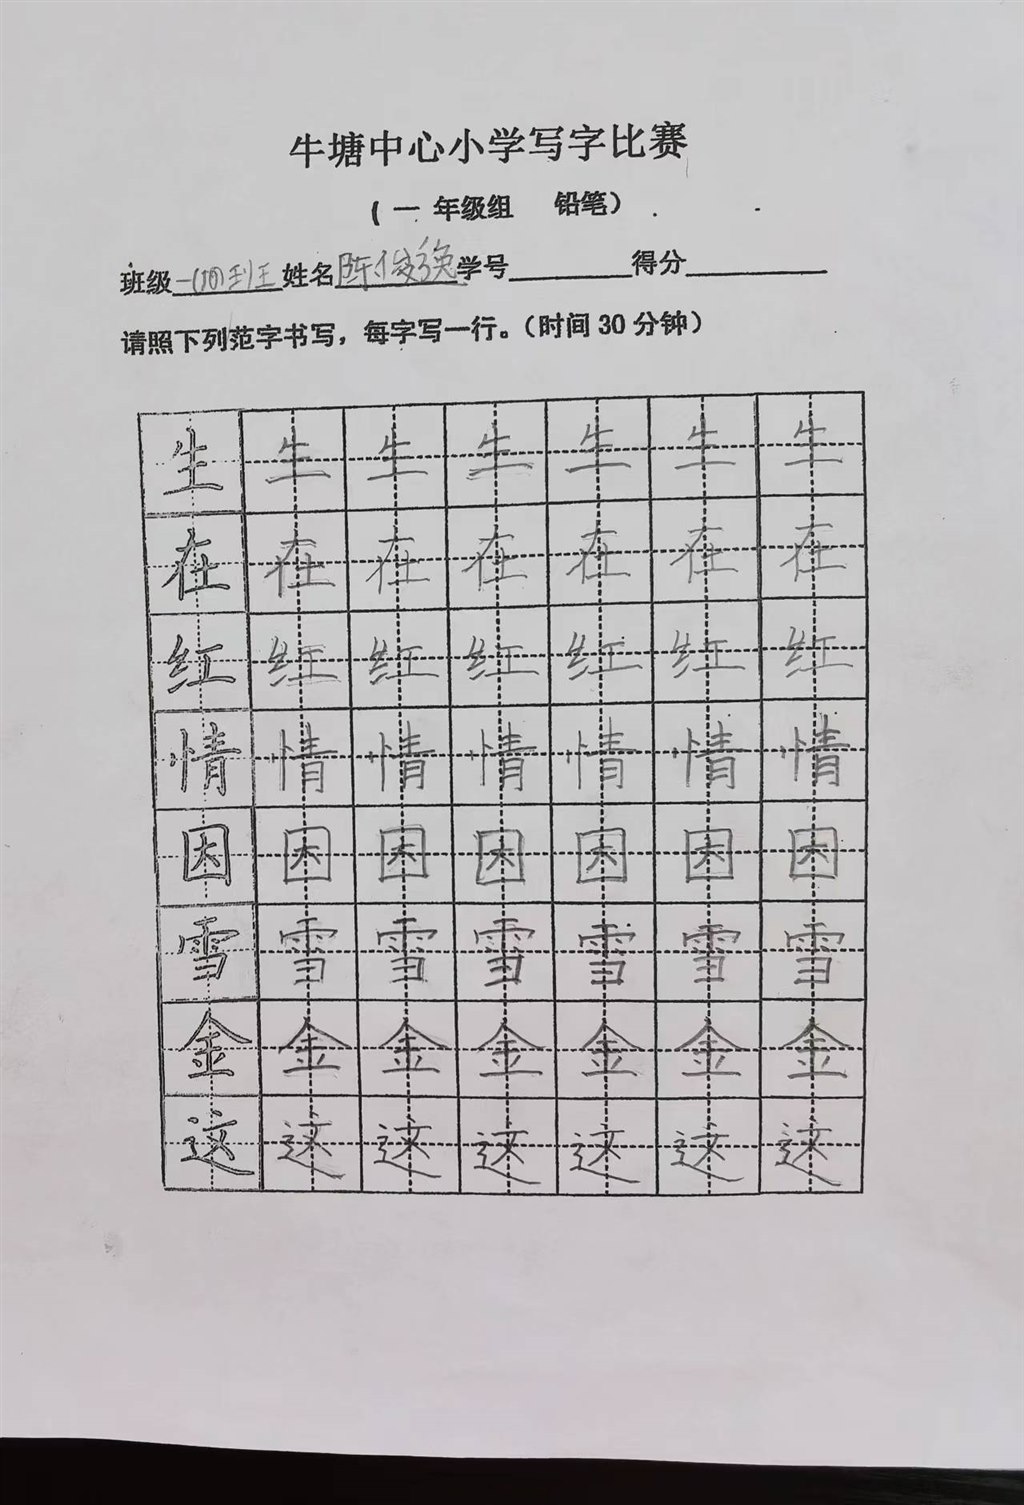 牛塘中心小学写字比赛
(一年级组 铅笔)
班级 姓名陈俊 学号 得分
请照下列范字书写，每字写一行。（时间30分钟）
生 生 生 生 生 生 生
在 在 在 在 在 在 在
红 红 红 红 红 红 红
情 情 情 情 情 情 情
因 因 因 因 因 因 因
雪 雪 雪 雪 雪 雪 雪
金 金 金 金 金 金 金
这 这 这 这 这 这 这